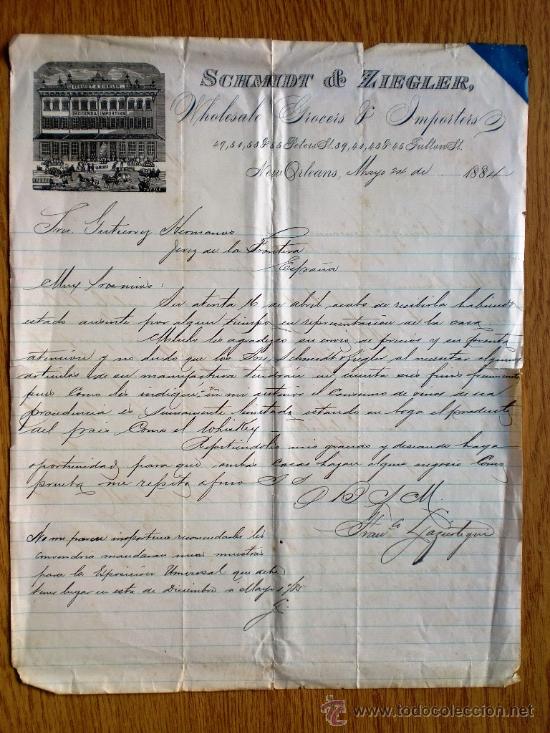 SCHMIDT & ZIEGLER,
Wholesale Grocers & Importers
49, 51, 53 & 55 Peters St. 39, 40, 43 & 45 Fulton St.
New Orleans, Mayo 24 de 1884
Sres. Gutierrez Hermanos
Jerez de la Frontera
España
Muy Sres. mios:
Su atenta 16 de abril acabo de recibirla habiendo
estado ausente por algun tiempo en representacion de la casa.
Mucho les agradezco su envio de precios y su pronta
atencion y no dudo que los Sres. Schmidt & Ziegler al necesitar algunos
articulos de su manufactura tendrán en cuenta sus finos
pues como les indiqué en mi anterior el consumo de vinos de esa
procedencia es sumamente limitado estando en boga el producto
del pais como el Whiskey.
Repitiendoles mis gracias y deseando haya
oportunidad para que ambas casas hagan algun negocio como
prueba me repito afmo. S. S.
Q B S M.
Franco.
No me parece inoportuno recomendarles les
convendria mandasen unas muestras
para la Exposicion Universal que debe
tener lugar en esta de Diciembre a Mayo
www.todocoleccion.net